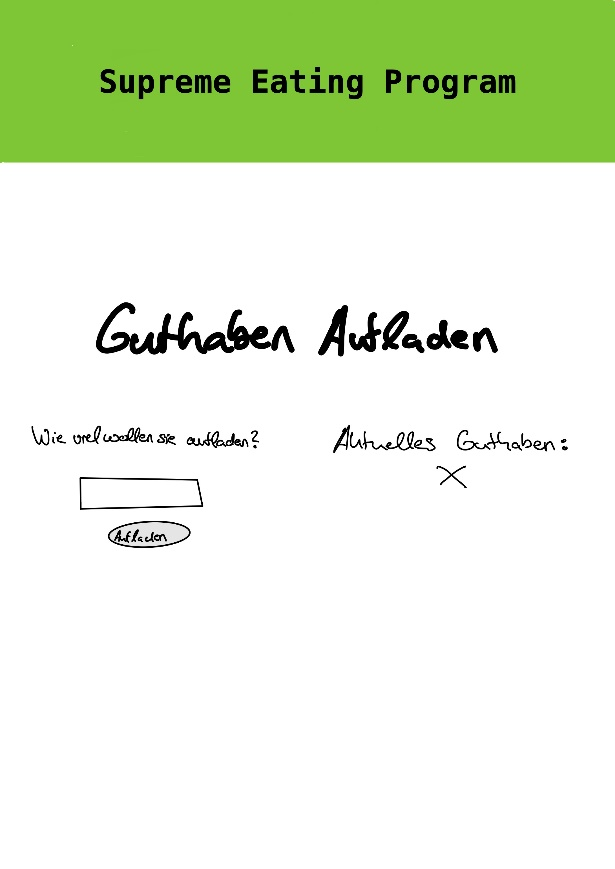 Supreme Eating Program
Guthaben Aufladen
Wie viel wollen sie aufladen?
Aktuelles Guthaben:
X
Aufladen